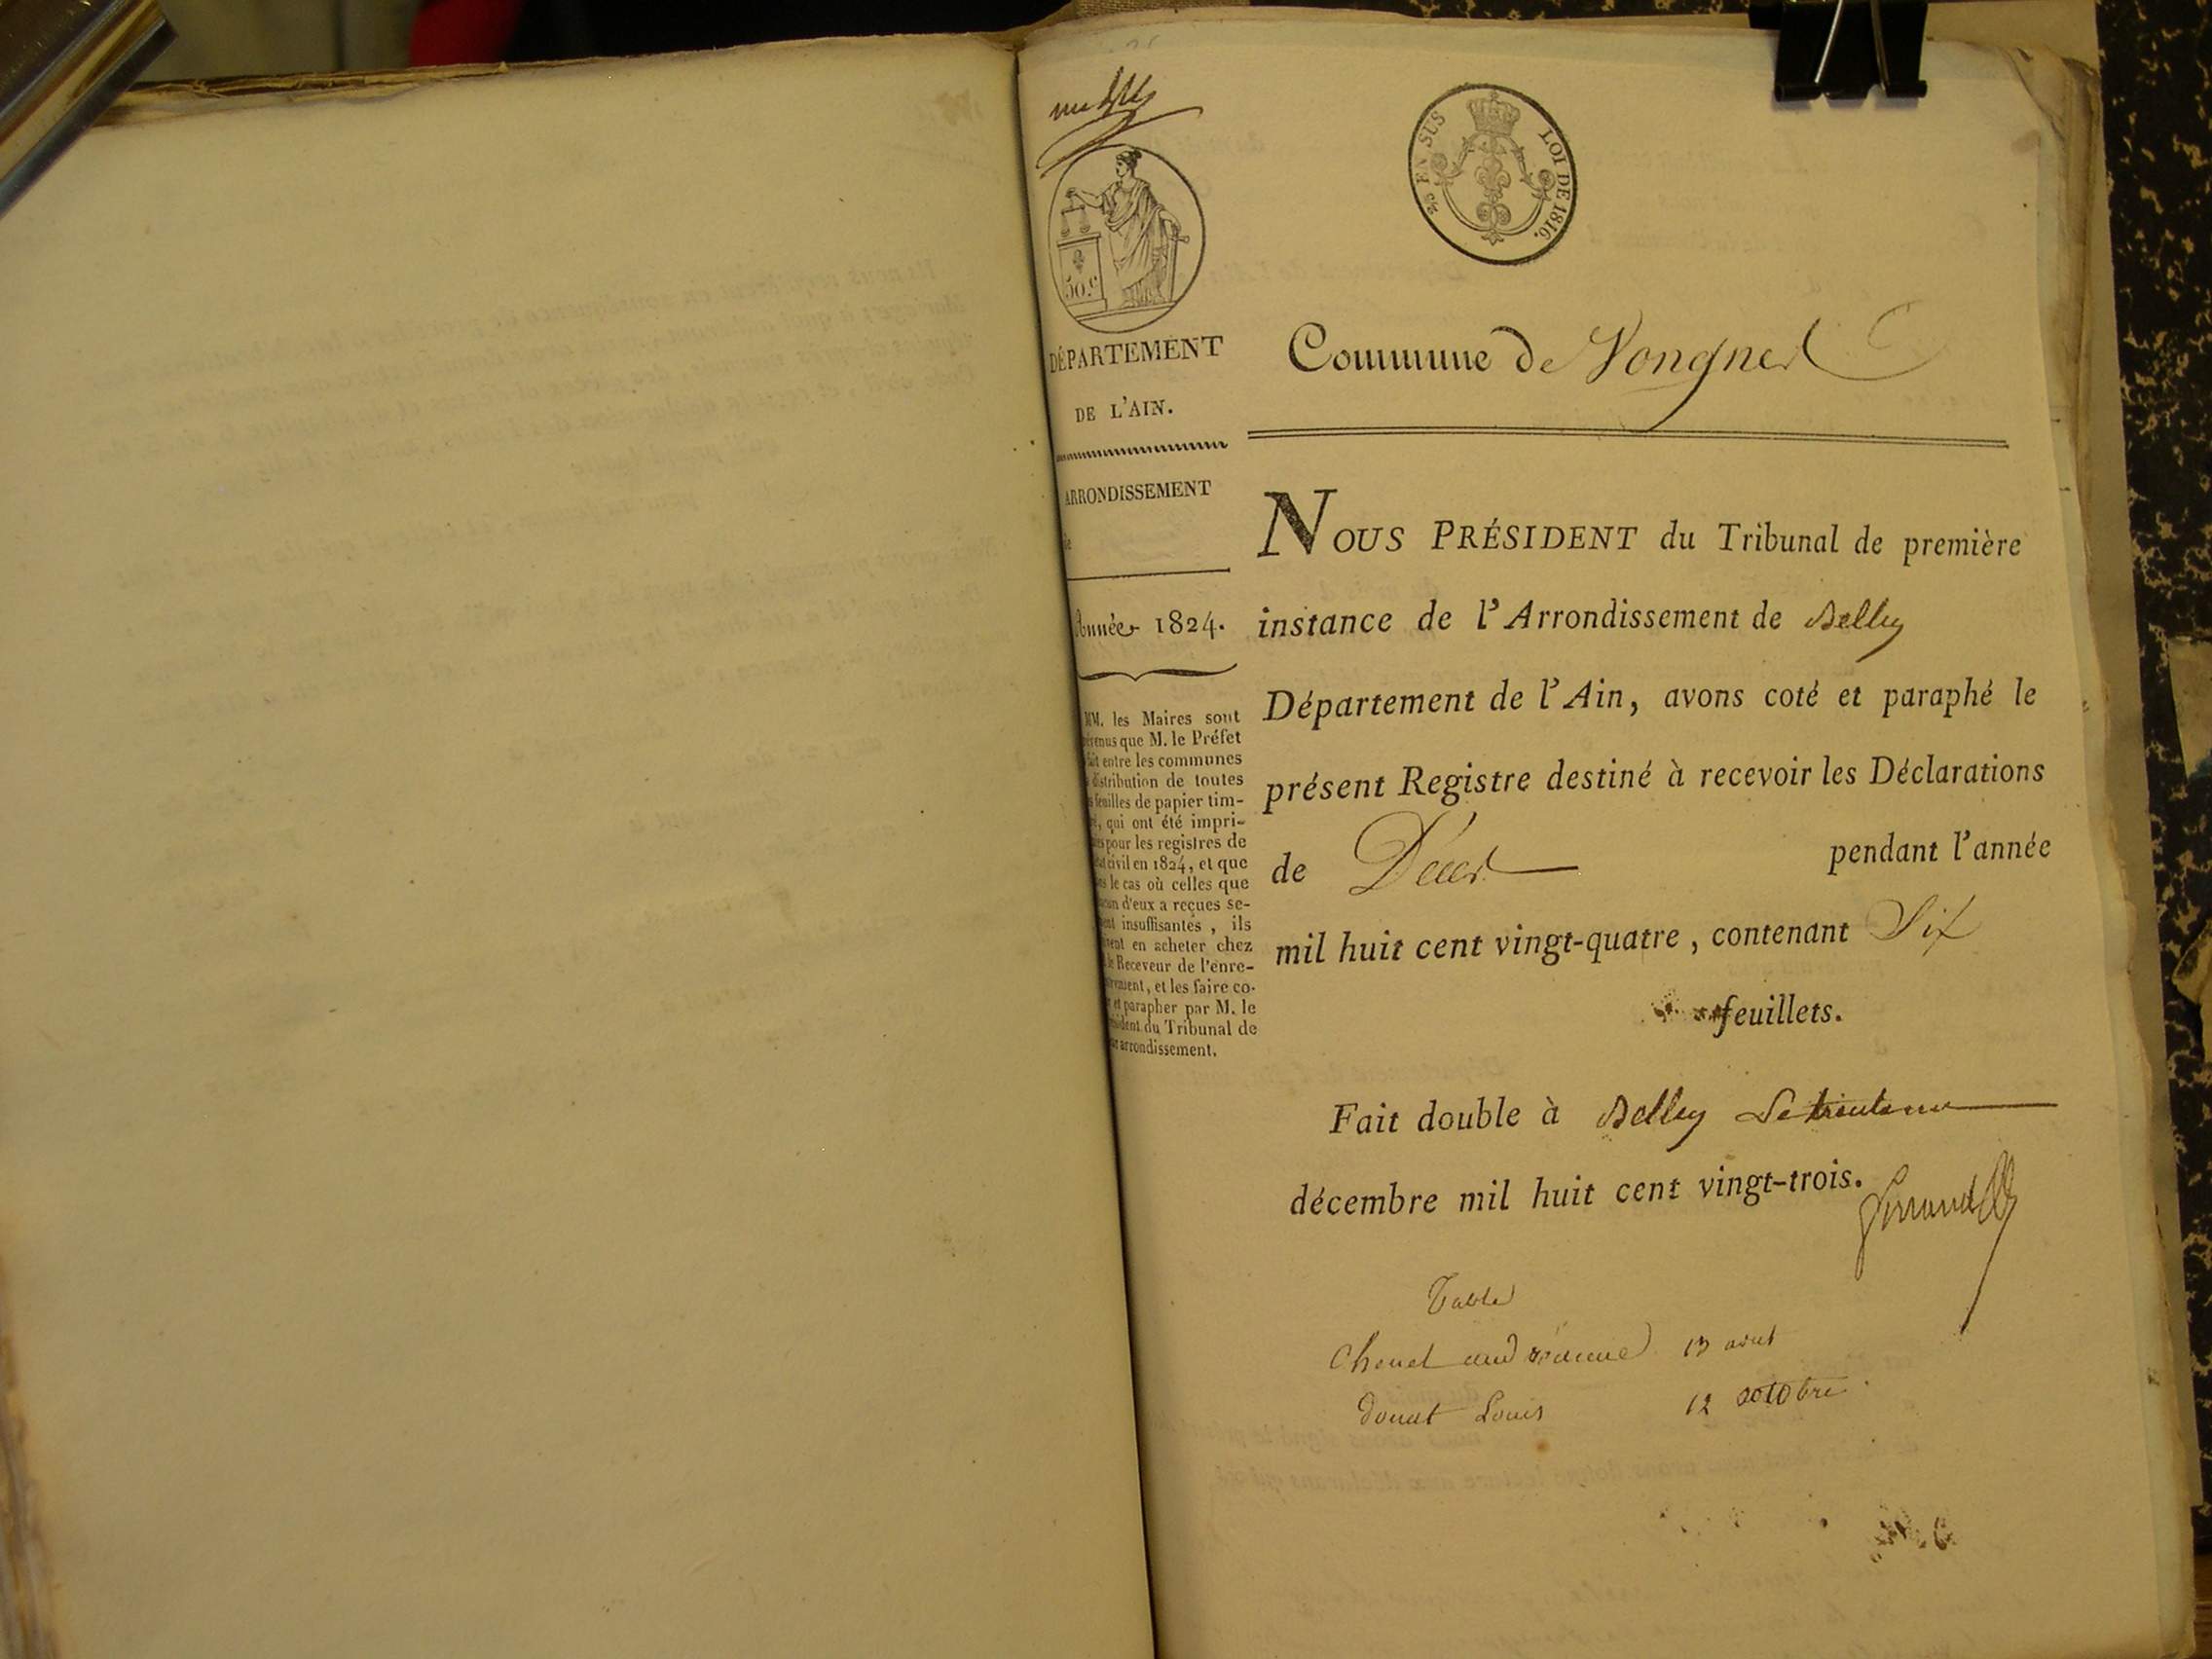 25 EN SUS
LOI DE 1816.
50 C
DÉPARTEMENT
DE L'AIN.
ARRONDISSEMENT
Année 1824.
MM. les Maires sont
que M. le Préfet
entre les communes
distribution de toutes
feuilles de papier tim-
qui ont été impri-
pour les registres de
civil en 1824, et que
le cas où celles que
d'eux a reçues se-
insuffisantes, ils
en acheter chez
le Receveur de l'enre-
et les faire co-
et parapher par M. le
du Tribunal de
arrondissement.
Commune de Vongnes
NOUS PRÉSIDENT du Tribunal de première
instance de l'Arrondissement de Belley
Département de l'Ain, avons coté et paraphé le
présent Registre destiné à recevoir les Déclarations
de Décès pendant l'année
mil huit cent vingt-quatre, contenant Six
feuillets.
Fait double à Belley Le trente un
décembre mil huit cent vingt-trois.
Table
13 aout
donat Louis 12 octobre